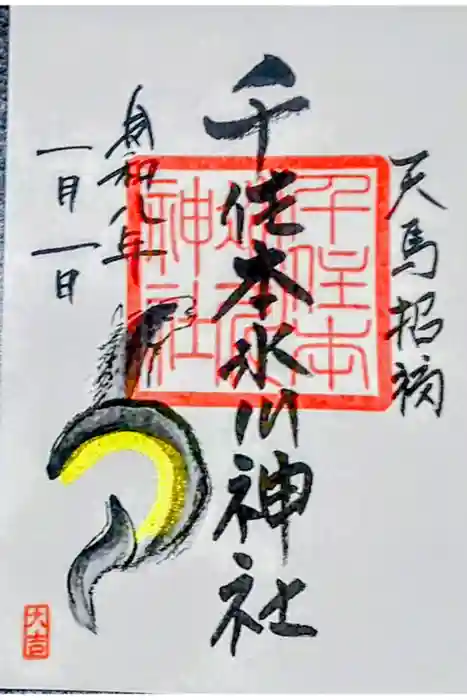 天馬招福
千住本氷川神社
令和八年
一月一日
千住本
神社
大吉